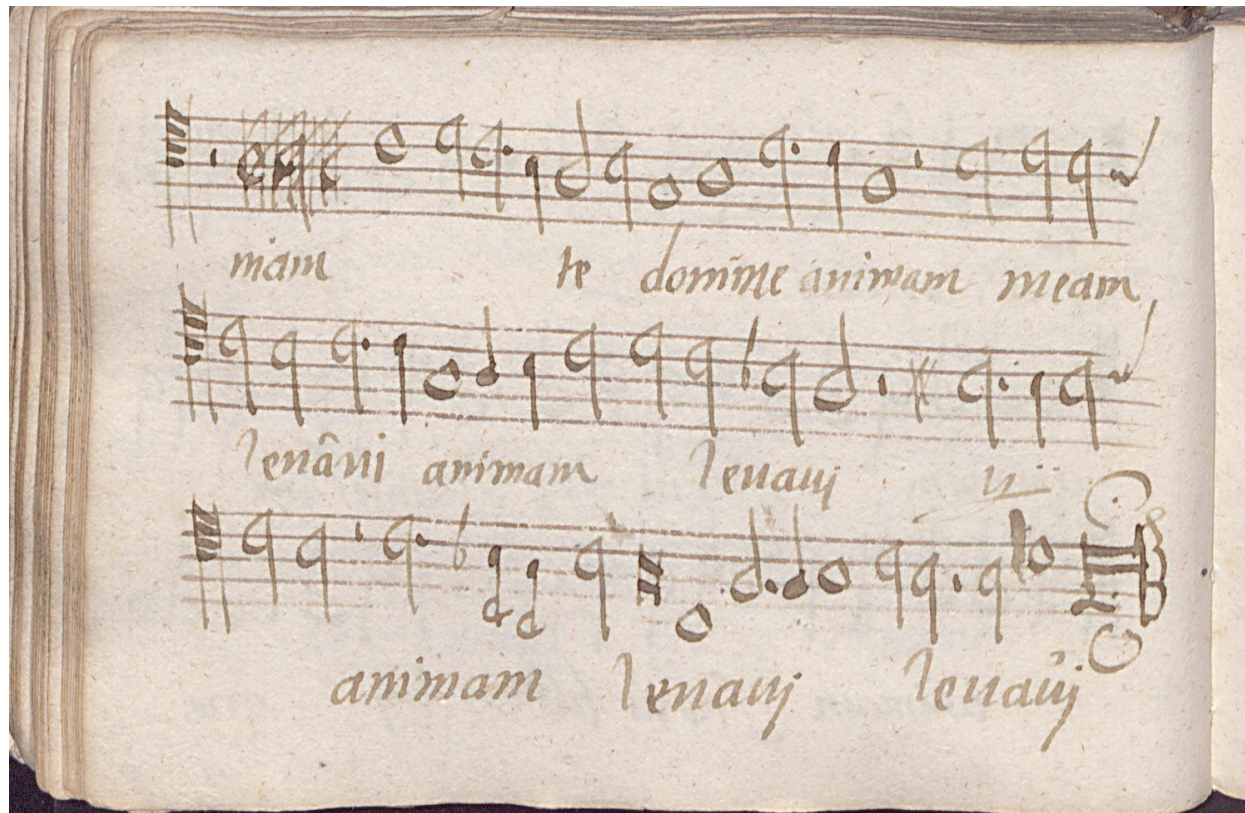 niam te domine animam meam
leuāui animam leuauj ij
animam leuauj leuauj